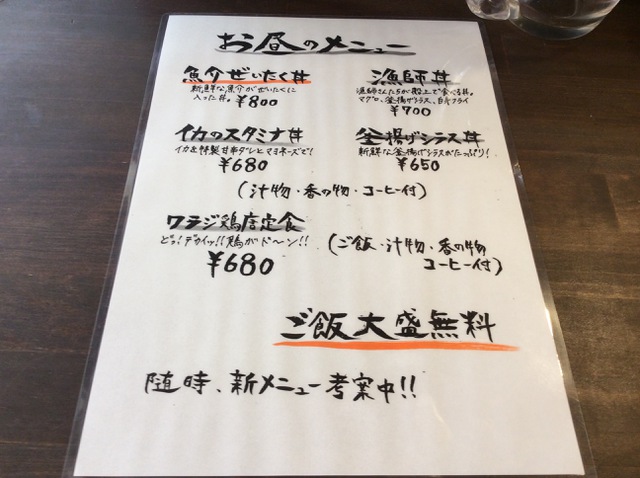 お昼のメニュー
魚介ぜいたく丼
新鮮な魚介がぜいたくに
入った丼。¥800
漁師丼
漁師さんたちが船上で食べる丼。
マグロ、釜揚げシラス、白身フライ
¥700
イカのスタミナ丼
イカを特製甘辛ダレとマヨネーズで!
¥680
釜揚げシラス丼
新鮮な釜揚げシラスがたっぷり!
¥650
(汁物・香の物・コーヒー付)
ワラジ鶏唐定食
どっ!デカイッ!!鶏がド〜ン!!
¥680
(ご飯・汁物・香の物
コーヒー付)
ご飯大盛無料
随時、新メニュー考案中!!